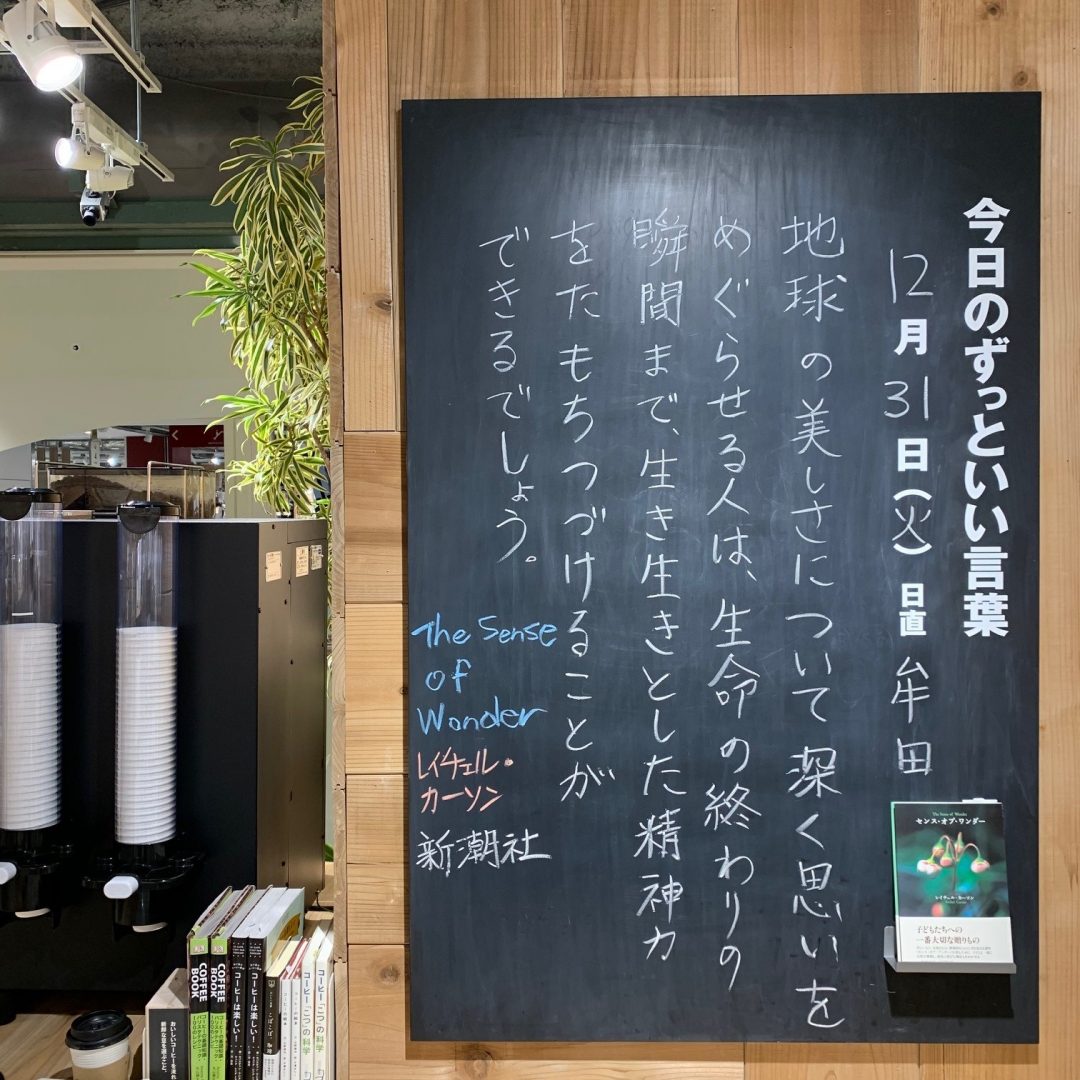 今日のずっといい言葉
12月31日(火) 日直 牟田
地球の美しさについて深く思いを
めぐらせる人は、生命の終わりの
瞬間まで、生き生きとした精神力
をたもちつづけることが
できるでしょう。
The Sense
of
Wonder
レイチェル・
カーソン
新潮社
The Sense of Wonder
センス・オブ・ワンダー
レイチェル・カーソン
子どもたちへの
一番大切な贈りもの
COFFEE BOOK
COFFEE BOOK
コーヒーは楽しい!
コーヒーは楽しい!
コーヒー「こつ」の科学
コーヒー「こつ」の科学
おいしいコーヒーを淹れ
新鮮な豆を選ぶこと、